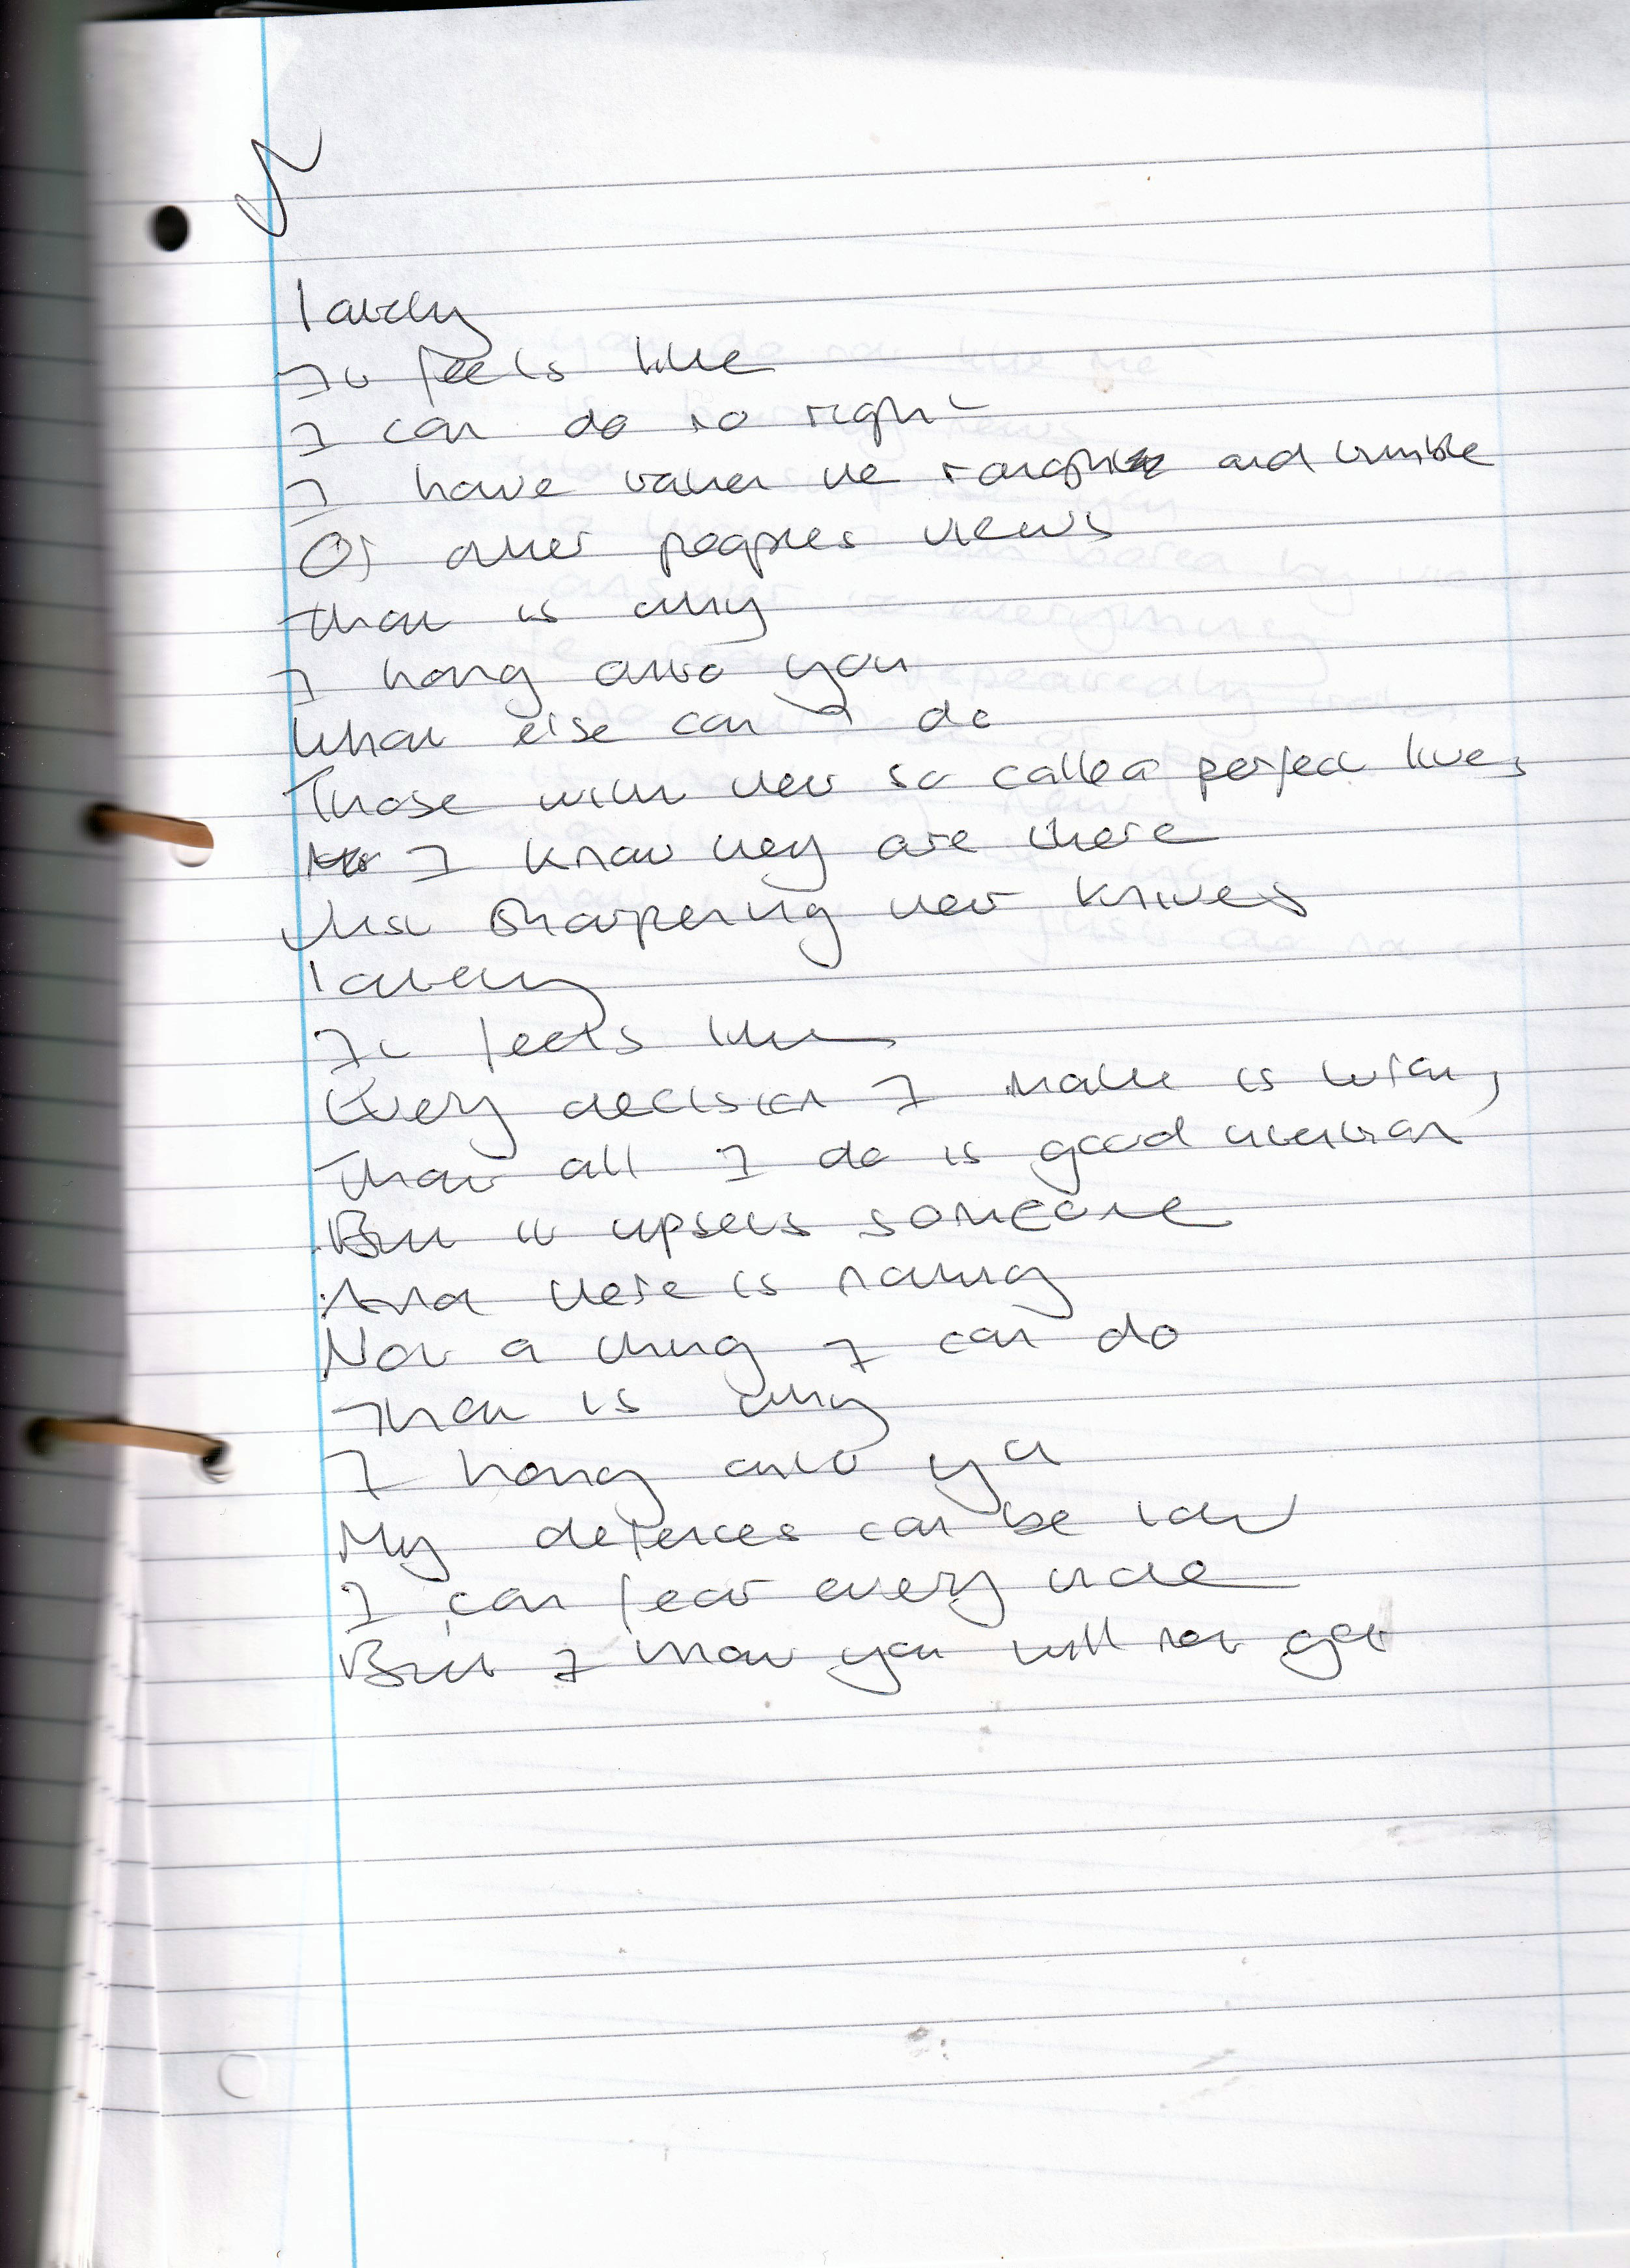 lately
It feels like
I can do no right
I have taken the rough and tumble
Of other peoples views
That is why
I hang onto you
What else can I do
Those with their so called perfect lives
I know they are there
Just sharpening their knives
lately
It feels like
Every decision I make is wrong
That all I do is good intention
But it upsets someone
And there is nothing
Not a thing I can do
That is why
I hang onto ya
My defences can be low
I can fear every
But I know you will not go